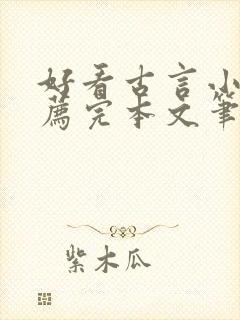 好看古言小
薦完本文筆
紫木瓜